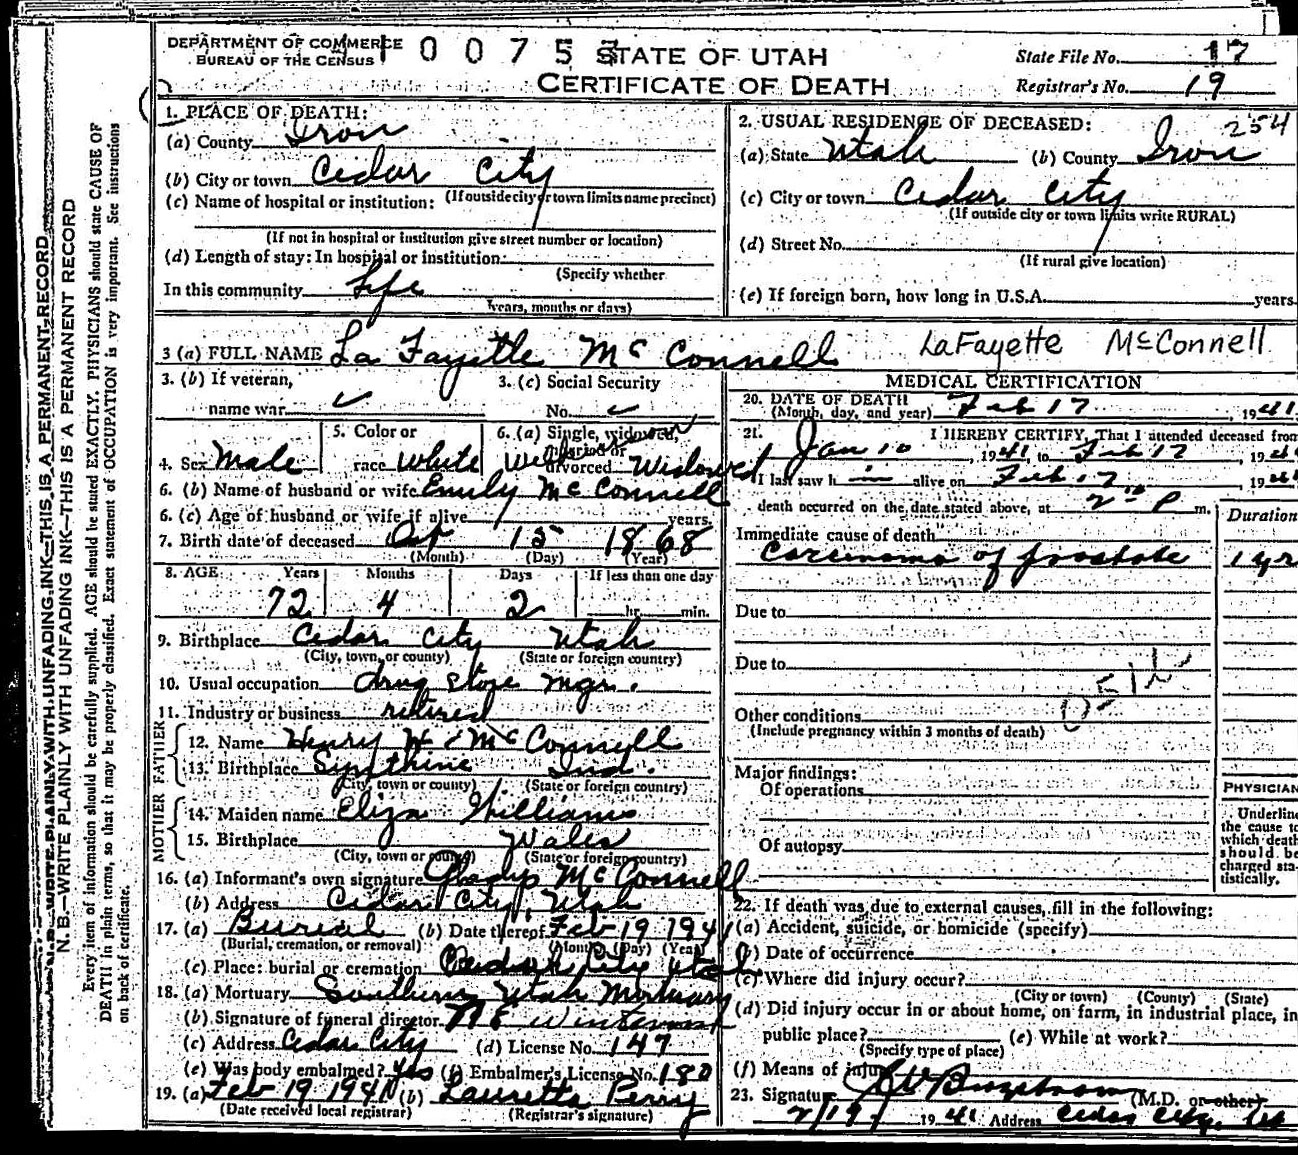 DEPARTMENT OF COMMERCE
BUREAU OF THE CENSUS
1 0 0 7 5
STATE OF UTAH
CERTIFICATE OF DEATH
State File No. 17
Registrar's No. 19
1. PLACE OF DEATH:
(a) County Iron
(b) City or town Cedar City
(If outside city or town limits name precinct)
(c) Name of hospital or institution:
(If not in hospital or institution give street number or location)
(d) Length of stay: In hospital or institution:
(Specify whether
In this community Life
years, months or days)
2. USUAL RESIDENCE OF DECEASED: 254
(a) State Utah (b) County Iron
(c) City or town Cedar City
(If outside city or town limits write RURAL)
(d) Street No.
(If rural give location)
(e) If foreign born, how long in U.S.A. years
3 (a) FULL NAME La Fayette McConnell LaFayette McConnell
3. (b) If veteran,
name war
3. (c) Social Security
No.
4. Sex Male
5. Color or
race White
6. (a) Single, widowed,
married or
divorced Widowed
6. (b) Name of husband or wife Emily McConnell
6. (c) Age of husband or wife if alive years.
7. Birth date of deceased Oct 15 1868
(Month) (Day) (Year)
8. AGE Years Months Days If less than one day
72 4 2 hr. min.
9. Birthplace Cedar City Utah
(City, town, or county) (State or foreign country)
10. Usual occupation drug store mgr.
11. Industry or business retired
FATHER
12. Name Henry H McConnell
13. Birthplace Ind.
(City, town or county) (State or foreign country)
MOTHER
14. Maiden name Eliza Williams
15. Birthplace Wales
(City, town or county) (State or foreign country)
16. (a) Informant's own signature Gladys McConnell
(b) Address Cedar City, Utah
17. (a) Burial (b) Date thereof Feb 19 1941
(Burial, cremation, or removal) (Month) (Day) (Year)
(c) Place: burial or cremation Cedar City Utah
18. (a) Mortuary Southern Utah Mortuary
(b) Signature of funeral director
(c) Address Cedar City (d) License No. 147
(e) Was body embalmed? Yes (f) Embalmer's License No. 180
19. (a) Feb 19 1941 (b) Lauretta Perry
(Date received local registrar) (Registrar's signature)
MEDICAL CERTIFICATION
20. DATE OF DEATH
(Month, day, and year) Feb 17, 1941
21. I HEREBY CERTIFY, That I attended deceased from
Jan 10, 1941 to Feb 17, 19
I last saw him alive on Feb 17, 19
death occurred on the date stated above, at 2 P m.
Duration
Immediate cause of death
Carcinoma of prostate 1 yr
Due to
Due to
Other conditions
(Include pregnancy within 3 months of death)
Major findings:
Of operations
Of autopsy
PHYSICIAN
Underline
the cause to
which death
should be
charged sta-
tistically.
22. If death was due to external causes, fill in the following:
(a) Accident, suicide, or homicide (specify)
(b) Date of occurrence
(c) Where did injury occur?
(City or town) (County) (State)
(d) Did injury occur in or about home, on farm, in industrial place, in
public place? (e) While at work?
(Specify type of place)
(f) Means of injury
23. Signature (M.D. or other)
2/19/ 1941 Address Cedar City, Ut
N.B.—WRITE PLAINLY WITH UNFADING INK—THIS IS A PERMANENT RECORD
N.B.—WRITE PLAINLY WITH UNFADING INK—THIS IS A PERMANENT RECORD
Every item of information should be carefully supplied. AGE should be stated EXACTLY. PHYSICIANS should state CAUSE OF
DEATH in plain terms, so that it may be properly classified. Exact statement of OCCUPATION is very important. See instructions
on back of certificate.